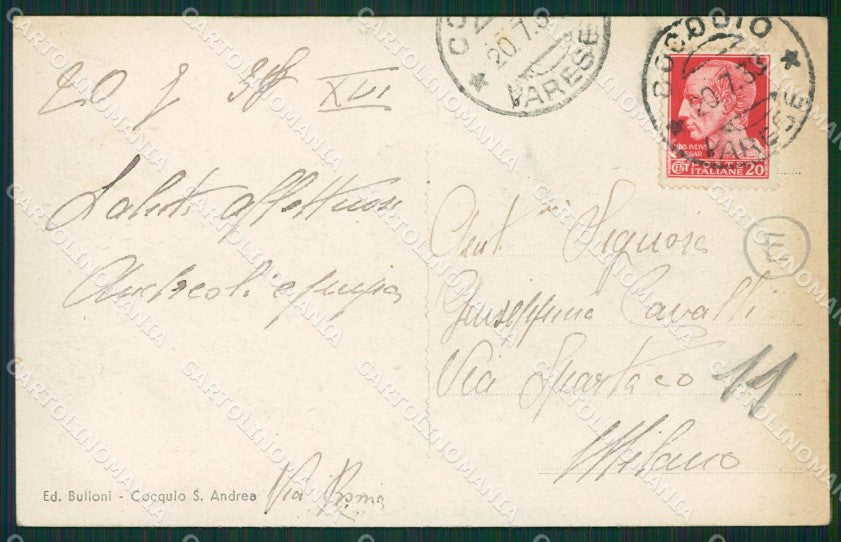 20 7 38 XVI
Saluti affettuosi
Andreoli e famiglia
Ed. Bulloni - Cocquio S. Andrea
Via Roma
COCQUIO
20.7.3
VARESE
COCQUIO
20.7.38
VARESE
CENT ITALIANE 20
Gent Signora
Giuseppina Cavalli
Via Spartaco 11
Milano
CARTOLINOMANIA